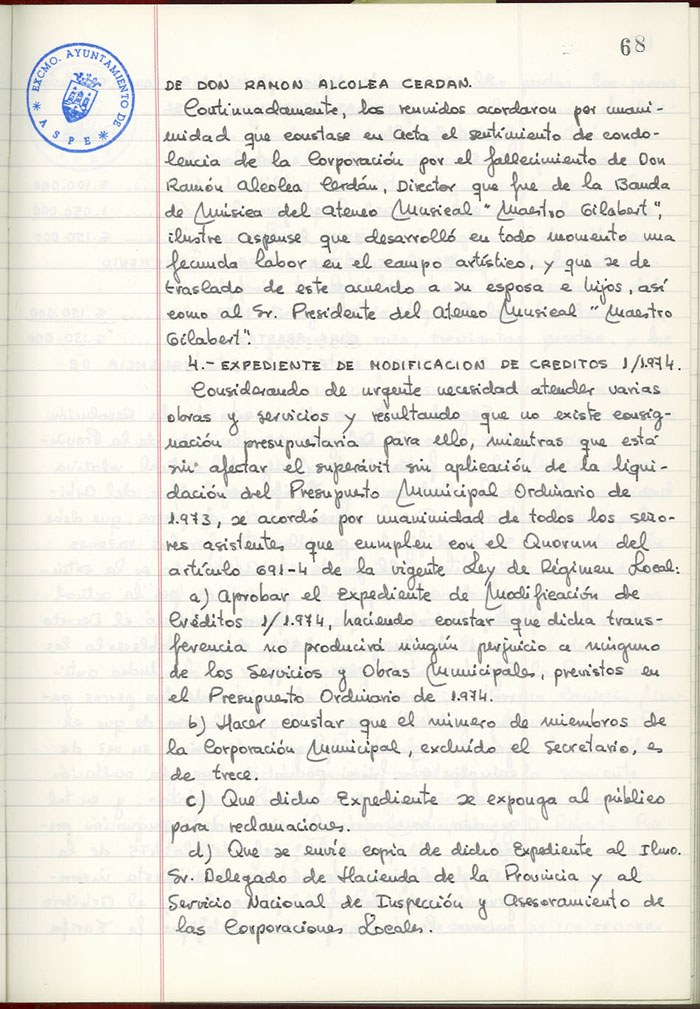 68
EXCMO. AYUNTAMIENTO DE
* ASPE *
DE DON RAMON ALCOLEA CERDAN.
Continuadamente, los reunidos acordaron por unani-
midad que constase en acta el sentimiento de condo-
lencia de la Corporación por el fallecimiento de Don
Ramón Alcolea Cerdán, Director que fue de la Banda
de Música del Ateneo Musical "Maestro Gilabert",
ilustre aspense que desarrolló en todo momento una
fecunda labor en el campo artístico, y que se de
traslado de este acuerdo a su esposa e hijos, así
como al Sr. Presidente del Ateneo Musical "Maestro
Gilabert".
4.- EXPEDIENTE DE MODIFICACION DE CREDITOS 1/1.974.
Considerando de urgente necesidad atender varias
obras y servicios y resultando que no existe consig-
nación presupuestaria para ello, mientras que está
sin afectar el superávit sin aplicación de la liqui-
dación del Presupuesto Municipal Ordinario de
1.973, se acordó por unanimidad de todos los seño-
res asistentes que cumplen con el Quorum del
artículo 691-4 de la vigente Ley de Régimen Local:
a) Aprobar el Expediente de Modificación de
Créditos 1/1.974, haciendo constar que dicha trans-
ferencia no producirá ningún perjuicio a ninguno
de los Servicios y Obras Municipales, previstos en
el Presupuesto Ordinario de 1.974.
b) Hacer constar que el número de miembros de
la Corporación Municipal, excluído el Secretario, es
de trece.
c) Que dicho Expediente se exponga al público
para reclamaciones.
d) Que se envíe copia de dicho Expediente al Ilmo.
Sr. Delegado de Hacienda de la Provincia y al
Servicio Nacional de Inspección y Asesoramiento de
las Corporaciones Locales.